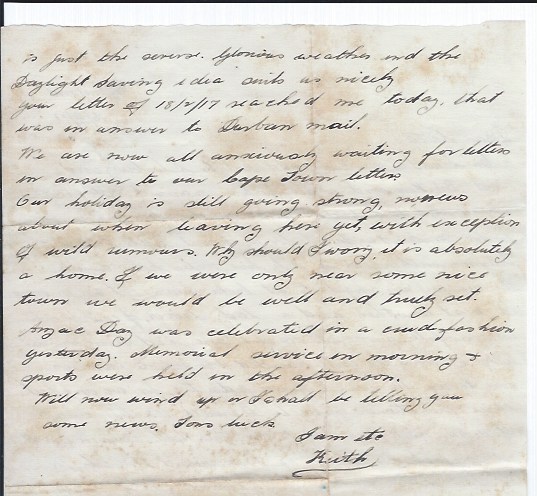 is just the reverse. Glorious weather and the
Daylight Saving idea suits us nicely
your letter of 18/2/17 reached me today. that
was in answer to Durban mail.
We are now all anxiously waiting for letters
in answer to our Cape Town letters.
Our holiday is still going strong, no news
about when leaving here yet, with exception
of wild rumours. Why should I worry, it is absolutely
a home. If we were only near some nice
town we would be well and truly set.
Anzac Day was celebrated in a crude fashion
yesterday. Memorial service in morning &
sports were held in the afternoon.
Will now wind up or I shall be telling you
some news. Tons luck
I am etc
Keith